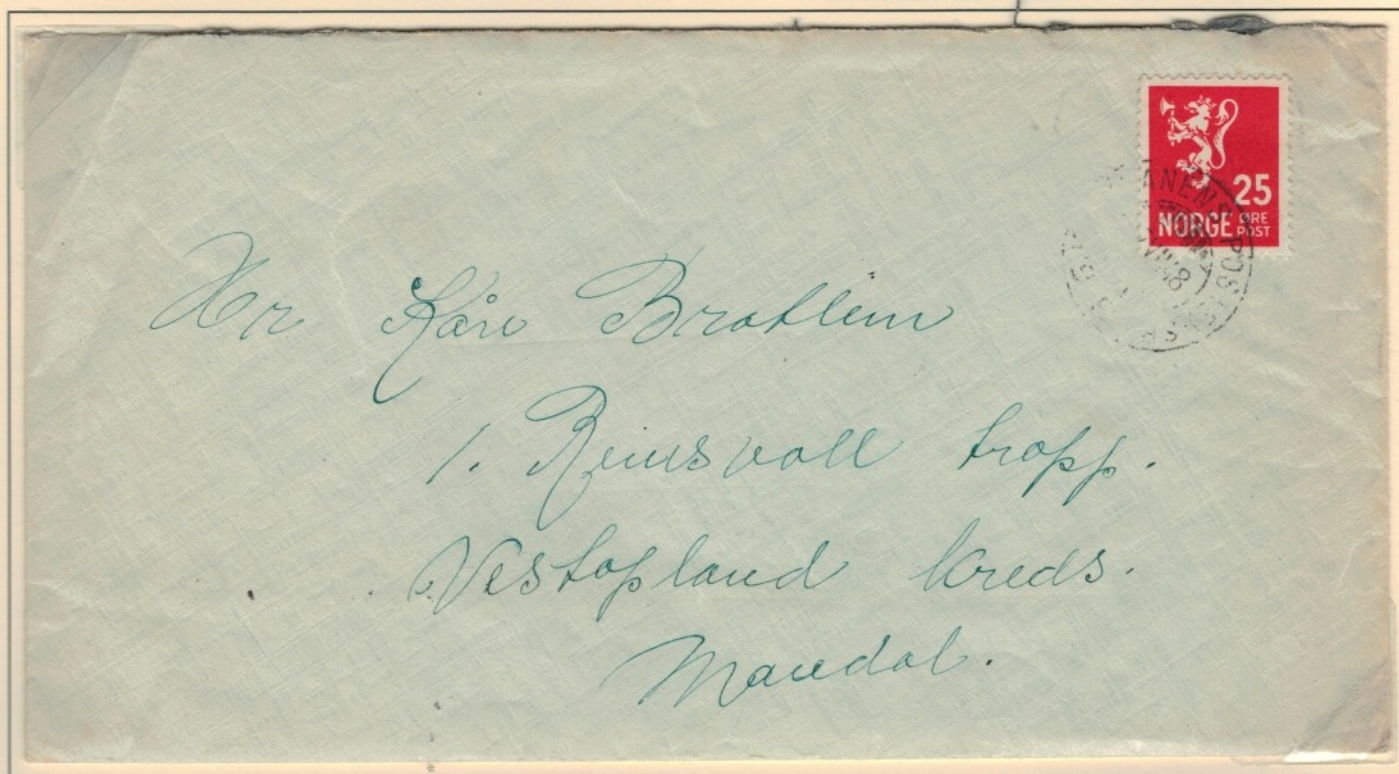 25
NORGE ØRE
POST
Hr Kåre Bratlien
1. Reinsvoll tropp.
Vestopland kreds.
Mandal.